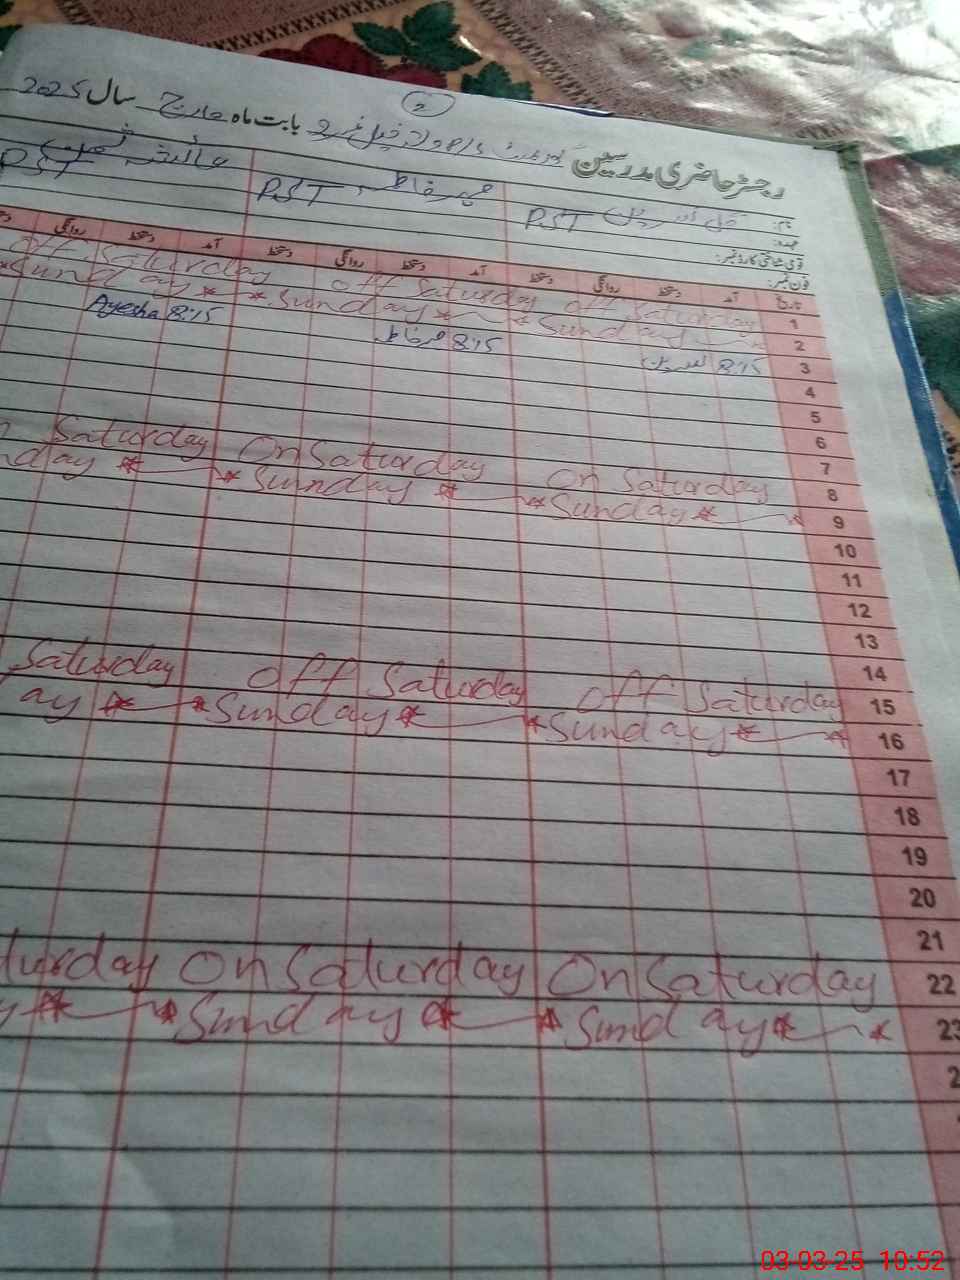 2
رجسٹر حاضری مدرسین بابت ماہ مارچ سال 2025
نام:
عہدہ: PST PST PST
قومی شناختی کارڈ نمبر:
فون نمبر:
تاریخ آمد دستخط روانگی دستخط آمد دستخط روانگی دستخط آمد دستخط روانگی
1 off Saturday off Saturday off Saturday
2 Sunday Sunday Sunday
3 8:15 8:15 8:15 Ayesha
4
5
6
7
8 On Saturday On Saturday Saturday
9 Sunday Sunday nday
10
11
12
13
14
15 off Saturday off Saturday Saturday
16 Sunday Sunday ay
17
18
19
20
21
22 On Saturday On Saturday turday
23 Sunday Sunday y
2
03-03-25 10:52